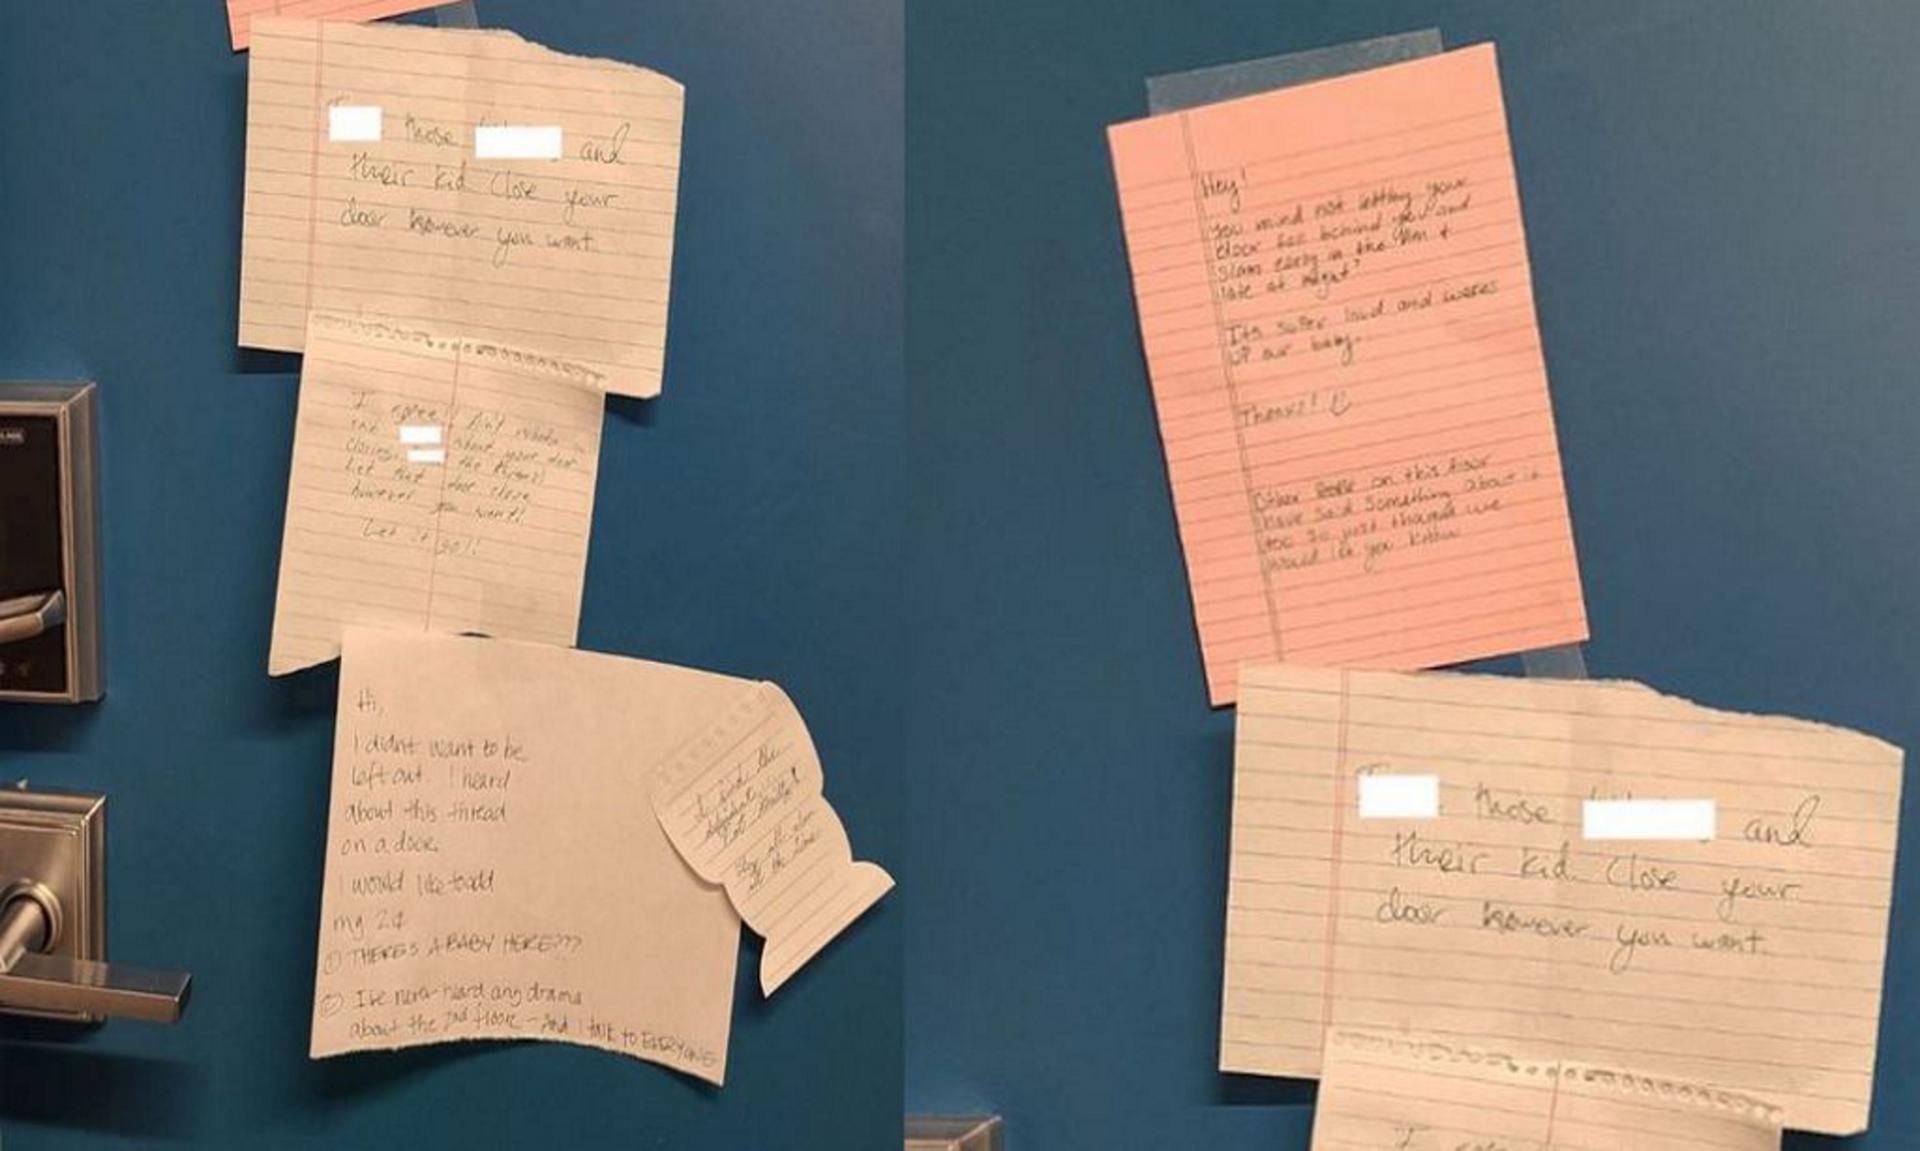 those and
their kid. Close your
door however you want.
I agree! Ain't nobody in
the about your door
closing the
Let that door close
however you want!
Let it go!!
Hi,
I didn't want to be
left out. I heard
about this thread
on a door.
I would like to add
my 2¢
① THERE'S A BABY HERE???
② I've never heard any drama
about the 2nd floor - and I talk to EVERYONE
I find the
Hey!
You mind not letting your
door go behind you and
slam early in the AM &
late at night?
Its super loud and wakes
up our baby.
Thanks! ☺
Other People on this floor
have said something about it
too so just thought we
would let you know
those and
their kid. Close your
door however you want.
I agree